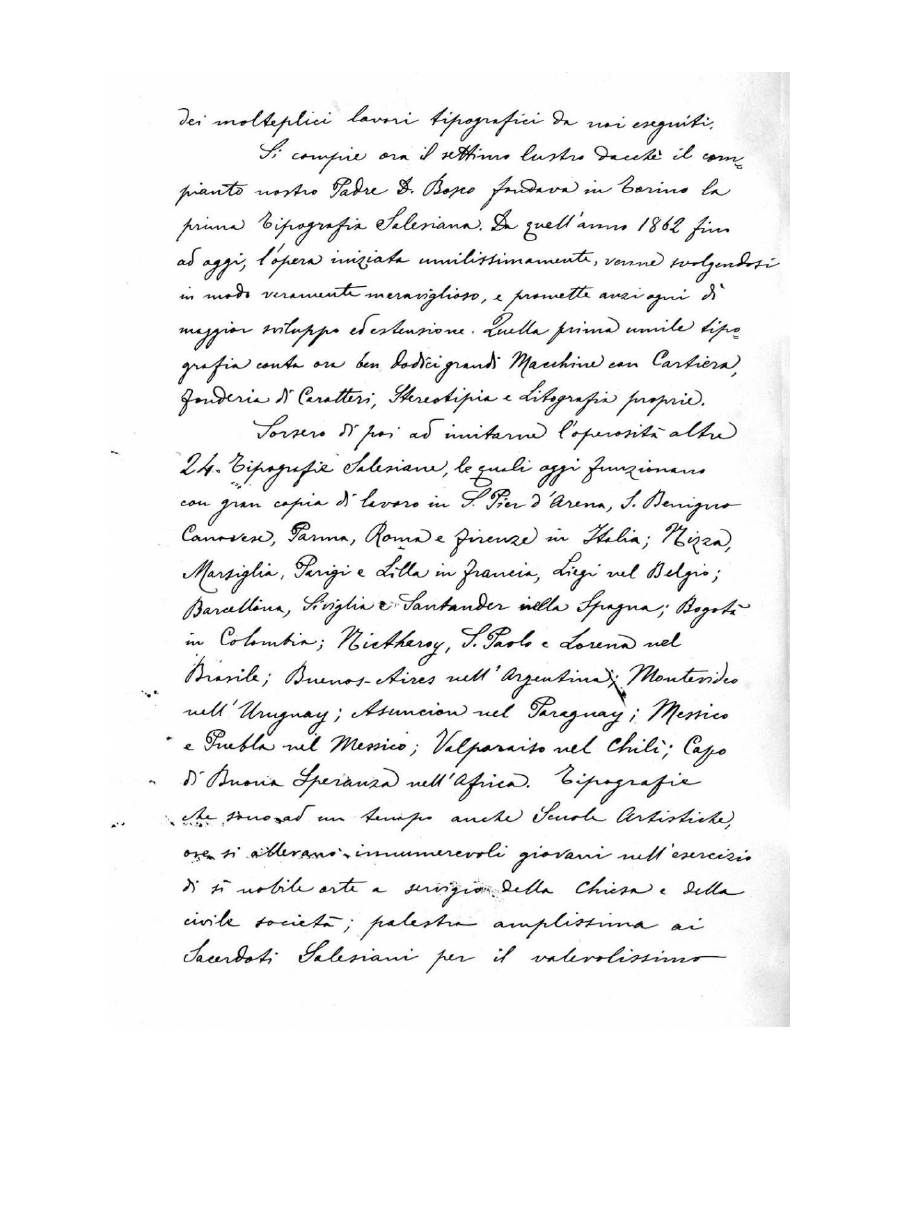 dei molteplici lavori tipografici da noi eseguiti.
Si compie ora il settimo lustro dacchè il com=
pianto nostro Padre D. Bosco fondava in Torino la
prima Tipografia Salesiana. Da quell'anno 1862 fino
ad oggi, l'opera iniziata umilissimamente, venne svolgendosi
in modo veramente meraviglioso, e promette anzi ogni dì
maggior sviluppo ed estensione. Quella prima umile tipo=
grafia conta ora ben dodici grandi Macchine con Cartiera,
fonderia di Caratteri, Stereotipia e Litografia proprie.
Sorsero di poi ad imitarne l'operosità altre
24. Tipografie Salesiane, le quali oggi funzionano
con gran copia di lavoro in S. Pier d'Arena, S. Benigno
Canavese, Parma, Roma e firenze in Italia; Nizza,
Marsiglia, Parigi e Lilla in francia, Liegi nel Belgio;
Barcellona, Siviglia e Santander nella Spagna; Bogotà
in Colombia; Nictheroy, S. Paolo e Lorena nel
Brasile; Buenos-Aires nell'Argentina; Montevideo
nell'Uruguay; Asuncion nel Paraguay; Messico
e Puebla nel Messico; Valparaiso nel Chilì; Capo
di Buona Speranza nell'Africa. Tipografie
che sono ad un tempo anche Scuole Artistiche,
ove si allevano innumerevoli giovani nell'esercizio
di sì nobile arte a servigio della Chiesa e della
civile società; palestra amplissima ai
Sacerdoti Salesiani per il valevolissimo